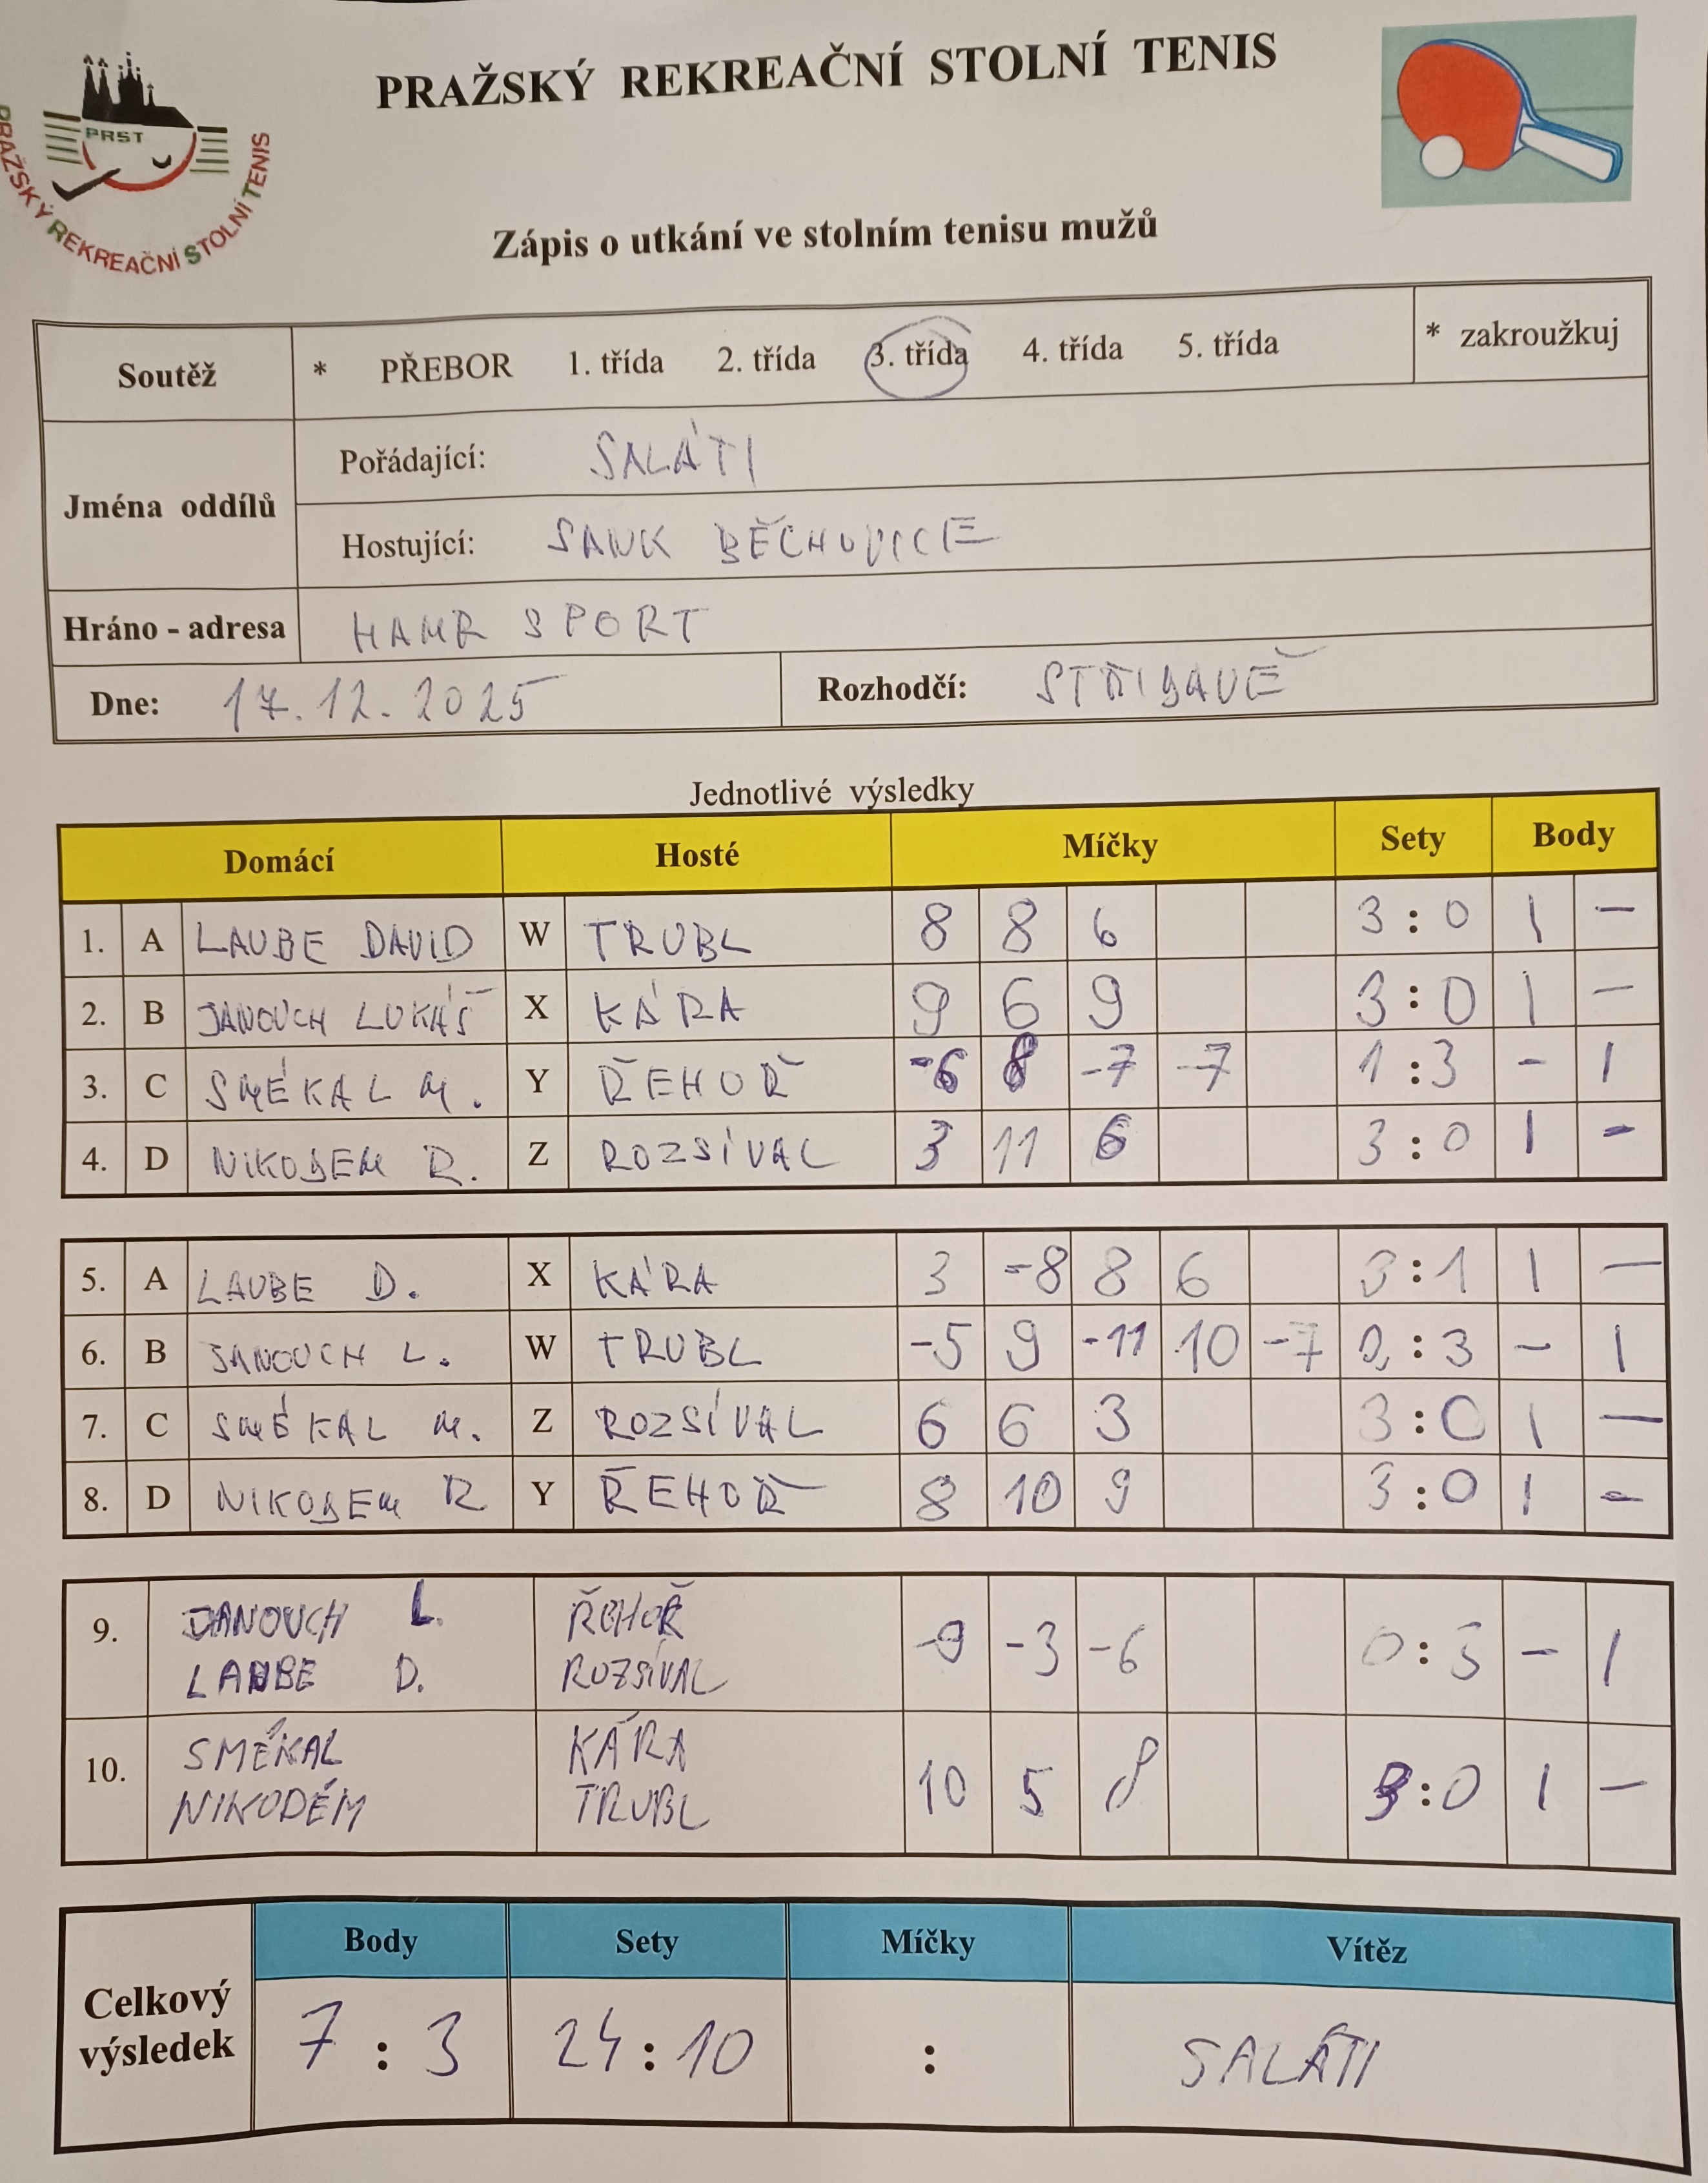 PRAŽSKÝ REKREAČNÍ STOLNÍ TENIS
PRST
PRAŽSKÝ REKREAČNÍ STOLNÍ TENIS
Zápis o utkání ve stolním tenisu mužů
Soutěž * PŘEBOR 1. třída 2. třída 3. třída 4. třída 5. třída * zakroužkuj
Jména oddílů
Pořádající: SALÁTI
Hostující: SANK BĚCHOVICE
Hráno - adresa HAMR SPORT
Dne: 17.12.2025 Rozhodčí: STŘÍDAVĚ
Jednotlivé výsledky
Domácí Hosté Míčky Sety Body
1. A LAUBE DAVID W TRUBL 8 8 6 3 : 0 1 –
2. B JANOUCH LUKÁŠ X KÁRA 9 6 9 3 : 0 1 –
3. C SMÉKAL M. Y ŘEHOŘ -6 8 -7 -7 1 : 3 – 1
4. D NIKODEM R. Z ROZSÍVAL 3 11 6 3 : 0 1 –
5. A LAUBE D. X KÁRA 3 -8 8 6 3 : 1 1 –
6. B JANOUCH L. W TRUBL -5 9 -11 10 -7 2 : 3 – 1
7. C SMÉKAL M. Z ROZSÍVAL 6 6 3 3 : 0 1 –
8. D NIKODEM R Y ŘEHOŘ 8 10 9 3 : 0 1 –
9. JANOUCH L. ŘEHOŘ -9 -3 -6 0 : 3 – 1
LAUBE D. ROZSÍVAL
10. SMÉKAL KÁRA 10 5 8 3 : 0 1 –
NIKODÉM TRUBL
Celkový výsledek
Body Sety Míčky Vítěz
7 : 3 24 : 10 : SALÁTI